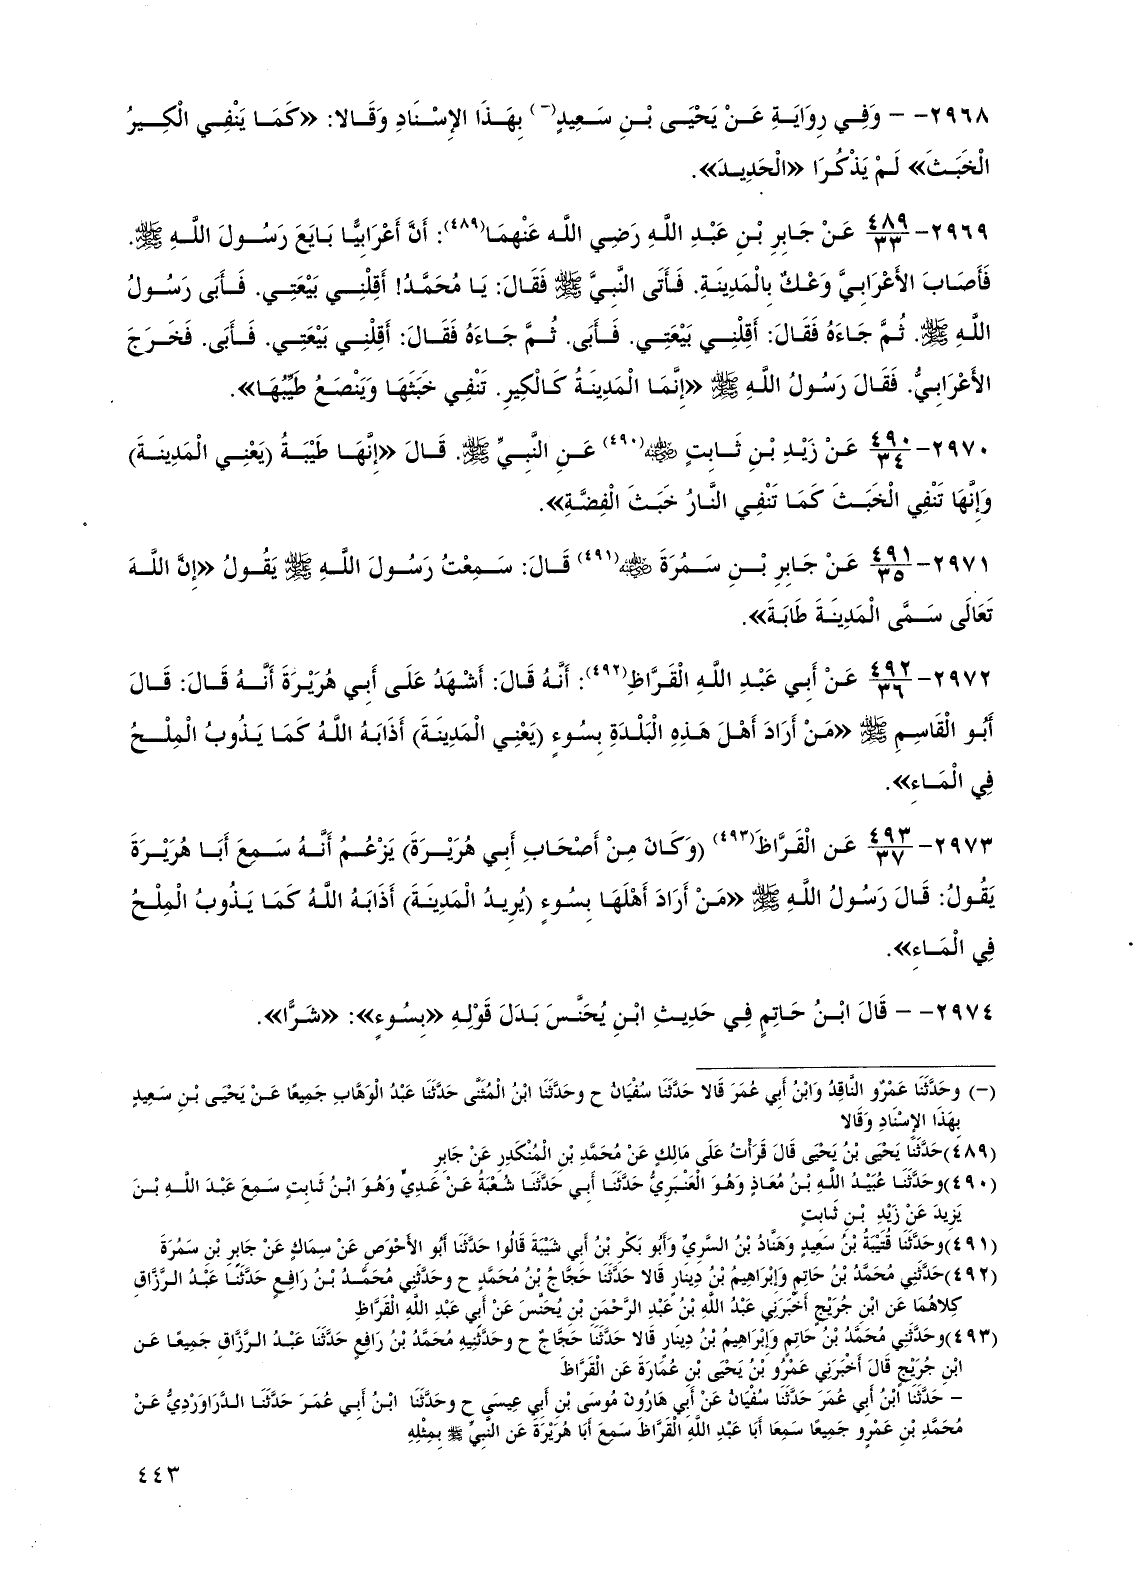 ٢٩٦٨- – وَفِي رِوَايَةِ عَنْ يَحْيَى بْنِ سَعِيدٍ(–) بِهَذَا الإِسْنَادِ وَقَالا: «كَمَا يَنْفِي الْكِيرُ
الْخَبَثَ» لَمْ يَذْكُرَا «الْحَدِيدَ».
٢٩٦٩- ٤٨٩/٣٣ عَنْ جَابِرِ بْنِ عَبْدِ اللَّهِ رَضِي اللَّه عَنْهمَا(٤٨٩): أَنَّ أَعْرَابِيًّا بَايَعَ رَسُولَ اللَّهِ ﷺ.
فَأَصَابَ الأَعْرَابِيَّ وَعْكٌ بِالْمَدِينَةِ. فَأَتَى النَّبِيَّ ﷺ فَقَالَ: يَا مُحَمَّدُ! أَقِلْنِي بَيْعَتِي. فَأَبَى رَسُولُ
اللَّهِ ﷺ. ثُمَّ جَاءَهُ فَقَالَ: أَقِلْنِي بَيْعَتِي. فَأَبَى. ثُمَّ جَاءَهُ فَقَالَ: أَقِلْنِي بَيْعَتِي. فَأَبَى. فَخَرَجَ
الأَعْرَابِيُّ. فَقَالَ رَسُولُ اللَّهِ ﷺ «إِنَّمَا الْمَدِينَةُ كَالْكِيرِ. تَنْفِي خَبَثَهَا وَيَنْصَعُ طَيِّبُهَا».
٢٩٧٠- ٤٩٠/٣٤ عَنْ زَيْدِ بْنِ ثَابِتٍ رضي الله عنه(٤٩٠) عَنِ النَّبِيِّ ﷺ. قَالَ «إِنَّهَا طَيْبَةُ (يَعْنِي الْمَدِينَةَ)
وَإِنَّهَا تَنْفِي الْخَبَثَ كَمَا تَنْفِي النَّارُ خَبَثَ الْفِضَّةِ».
٢٩٧١- ٤٩١/٣٥ عَنْ جَابِرِ بْنِ سَمُرَةَ رضي الله عنه(٤٩١) قَالَ: سَمِعْتُ رَسُولَ اللَّهِ ﷺ يَقُولُ «إِنَّ اللَّهَ
تَعَالَى سَمَّى الْمَدِينَةَ طَابَةَ».
٢٩٧٢- ٤٩٢/٣٦ عَنْ أَبِي عَبْدِ اللَّهِ الْقَرَّاظِ(٤٩٢): أَنَّهُ قَالَ: أَشْهَدُ عَلَى أَبِي هُرَيْرَةَ أَنَّهُ قَالَ: قَالَ
أَبُو الْقَاسِمِ ﷺ «مَنْ أَرَادَ أَهْلَ هَذِهِ الْبَلْدَةِ بِسُوءٍ (يَعْنِي الْمَدِينَةَ) أَذَابَهُ اللَّهُ كَمَا يَذُوبُ الْمِلْحُ
فِي الْمَاءِ».
٢٩٧٣- ٤٩٣/٣٧ عَنِ الْقَرَّاظَ(٤٩٣) (وَكَانَ مِنْ أَصْحَابِ أَبِي هُرَيْرَةَ) يَزْعُمُ أَنَّهُ سَمِعَ أَبَا هُرَيْرَةَ
يَقُولُ: قَالَ رَسُولُ اللَّهِ ﷺ «مَنْ أَرَادَ أَهْلَهَا بِسُوءٍ (يُرِيدُ الْمَدِينَةَ) أَذَابَهُ اللَّهُ كَمَا يَذُوبُ الْمِلْحُ
فِي الْمَاءِ».
٢٩٧٤- – قَالَ ابْنُ حَاتِمٍ فِي حَدِيثِ ابْنِ يُحَنَّسَ بَدَلَ قَوْلِهِ «بِسُوءٍ»: «شَرًّا».
(–) وحَدَّثَنَا عَمْرٌو النَّاقِدُ وَابْنُ أَبِي عُمَرَ قَالا حَدَّثَنَا سُفْيَانُ ح وحَدَّثَنَا ابْنُ الْمُثَنَّى حَدَّثَنَا عَبْدُ الْوَهَّابِ جَمِيعًا عَنْ يَحْيَى بْنِ سَعِيدٍ
بِهَذَا الإِسْنَادِ وَقَالا
(٤٨٩)حَدَّثَنَا يَحْيَى بْنُ يَحْيَى قَالَ قَرَأْتُ عَلَى مَالِكٍ عَنْ مُحَمَّدِ بْنِ الْمُنْكَدِرِ عَنْ جَابِرِ
(٤٩٠)وحَدَّثَنَا عُبَيْدُ اللَّهِ بْنُ مُعَاذٍ وَهُوَ الْعَنْبَرِيُّ حَدَّثَنَا أَبِي حَدَّثَنَا شُعْبَةُ عَنْ عَدِيٍّ وَهُوَ ابْنُ ثَابِتٍ سَمِعَ عَبْدَ اللَّهِ بْنَ
يَزِيدَ عَنْ زَيْدِ بْنِ ثَابِتٍ
(٤٩١)وحَدَّثَنَا قُتَيْبَةُ بْنُ سَعِيدٍ وَهَنَّادُ بْنُ السَّرِيِّ وَأَبُو بَكْرِ بْنُ أَبِي شَيْبَةَ قَالُوا حَدَّثَنَا أَبُو الأَحْوَصِ عَنْ سِمَاكٍ عَنْ جَابِرِ بْنِ سَمُرَةَ
(٤٩٢)حَدَّثَنِي مُحَمَّدُ بْنُ حَاتِمٍ وَإِبْرَاهِيمُ بْنُ دِينَارٍ قَالا حَدَّثَنَا حَجَّاجُ بْنُ مُحَمَّدٍ ح وحَدَّثَنِي مُحَمَّدُ بْنُ رَافِعٍ حَدَّثَنَا عَبْدُ الرَّزَّاقِ
كِلاهُمَا عَنِ ابْنِ جُرَيْجٍ أَخْبَرَنِي عَبْدُ اللَّهِ بْنُ عَبْدِ الرَّحْمَنِ بْنِ يُحَنَّسَ عَنْ أَبِي عَبْدِ اللَّهِ الْقَرَّاظِ
(٤٩٣)وحَدَّثَنِي مُحَمَّدُ بْنُ حَاتِمٍ وَإِبْرَاهِيمُ بْنُ دِينَارٍ قَالا حَدَّثَنَا حَجَّاجٌ ح وحَدَّثَنِيهِ مُحَمَّدُ بْنُ رَافِعٍ حَدَّثَنَا عَبْدُ الرَّزَّاقِ جَمِيعًا عَنِ
ابْنِ جُرَيْجٍ قَالَ أَخْبَرَنِي عَمْرُو بْنُ يَحْيَى بْنِ عُمَارَةَ عَنِ الْقَرَّاظَ
– حَدَّثَنَا ابْنُ أَبِي عُمَرَ حَدَّثَنَا سُفْيَانُ عَنْ أَبِي هَارُونَ مُوسَى بْنِ أَبِي عِيسَى ح وحَدَّثَنَا ابْنُ أَبِي عُمَرَ حَدَّثَنَا الدَّرَاوَرْدِيُّ عَنْ
مُحَمَّدِ بْنِ عَمْرٍو جَمِيعًا سَمِعَا أَبَا عَبْدِ اللَّهِ الْقَرَّاظَ سَمِعَ أَبَا هُرَيْرَةَ عَنِ النَّبِيِّ ﷺ بِمِثْلِهِ
٤٤٣